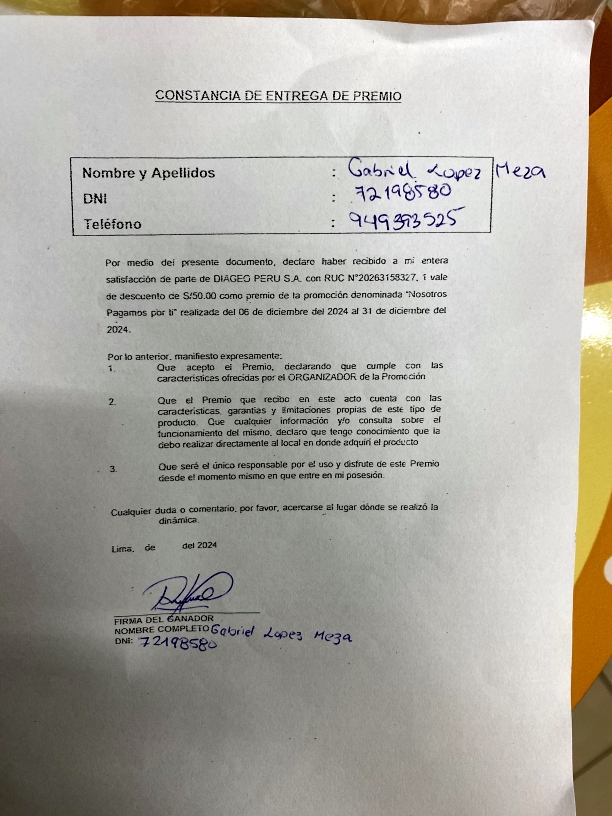 CONSTANCIA DE ENTREGA DE PREMIO
Nombre y Apellidos : Gabriel Lopez Meza
DNI : 72198580
Teléfono : 949393525
Por medio del presente documento, declaro haber recibido a mi entera
satisfacción de parte de DIAGEO PERU S.A. con RUC N°20263158327, 1 vale
de descuento de S/50.00 como premio de la promoción denominada "Nosotros
Pagamos por ti" realizada del 06 de diciembre del 2024 al 31 de diciembre del
2024.
Por lo anterior, manifiesto expresamente:
1. Que acepto el Premio, declarando que cumple con las
características ofrecidas por el ORGANIZADOR de la Promoción
2. Que el Premio que recibo en este acto cuenta con las
características, garantías y limitaciones propias de este tipo de
producto. Que cualquier información y/o consulta sobre el
funcionamiento del mismo, declaro que tengo conocimiento que la
debo realizar directamente al local en donde adquirí el producto
3. Que seré el único responsable por el uso y disfrute de este Premio
desde el momento mismo en que entre en mi posesión.
Cualquier duda o comentario, por favor, acercarse al lugar dónde se realizó la
dinámica.
Lima, de del 2024
FIRMA DEL GANADOR
NOMBRE COMPLETO Gabriel Lopez Meza
DNI: 72198580